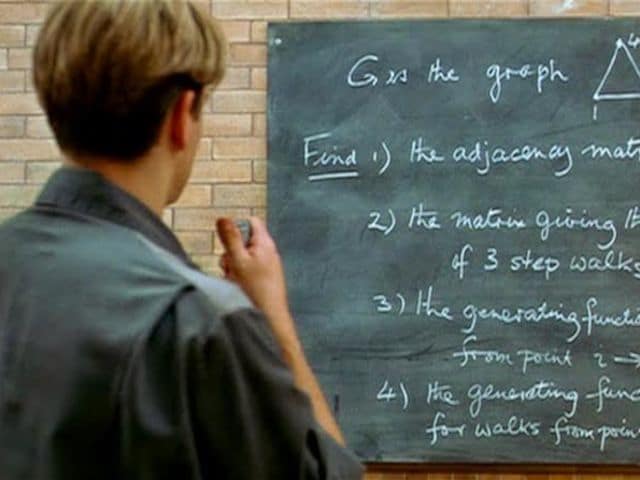 G is the graph
4
1
Find 1) the adjacency matr
2) the matrix giving th
of 3 step walks
3) the generating functio
from point i →
4) the generating func
for walks from poin